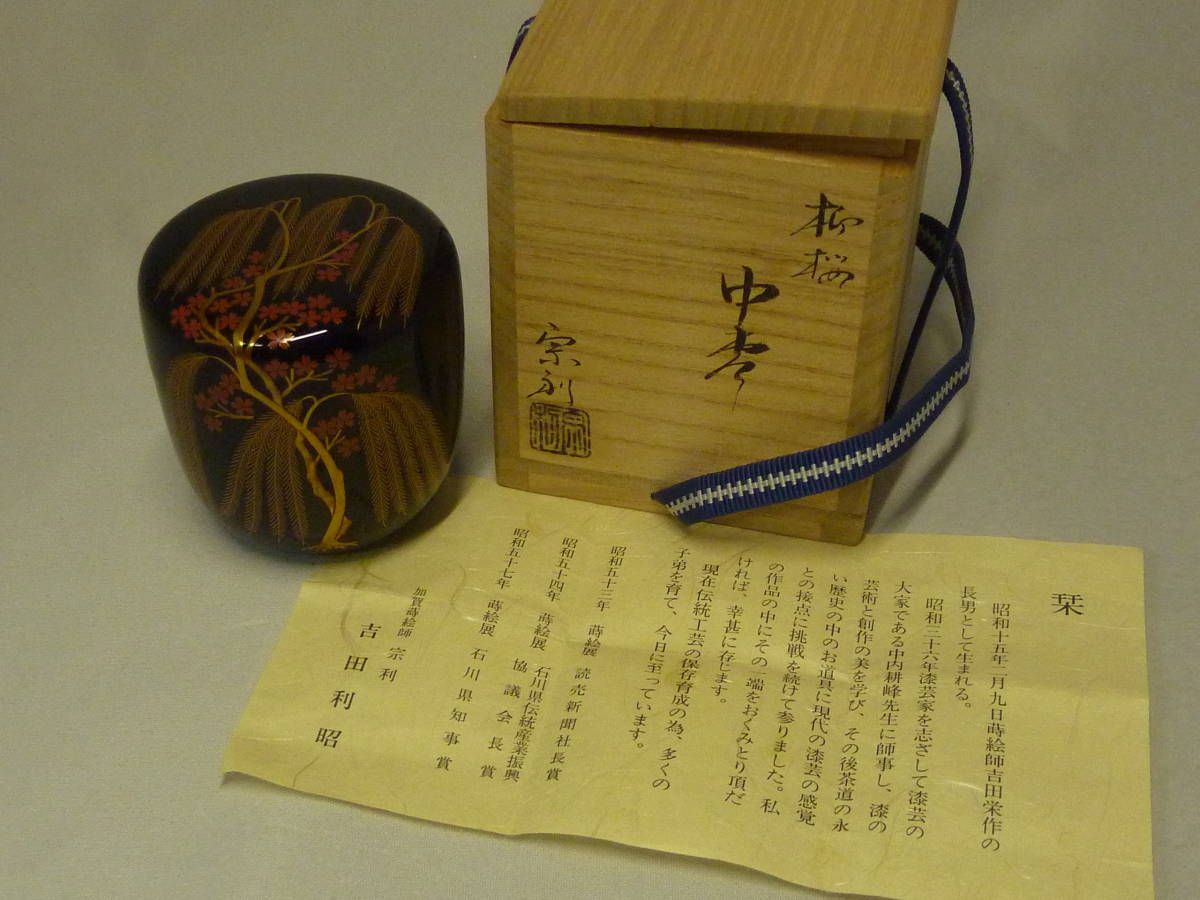 柳桜
中棗
宗利
栞
昭和十五年二月九日蒔絵師吉田栄作の
長男として生まれる。
昭和三十六年漆芸家を志ざして漆芸の
大家である中内耕峰先生に師事し、漆の
芸術と創作の美を学び、その後茶道の永
い歴史の中のお道具に現代の漆芸の感覚
との接点に挑戦を続けて参りました。私
の作品の中にその一端をおくみとり頂だ
ければ、幸甚に存じます。
現在伝統工芸の保存育成の為、多くの
子弟を育て、今日に至っています。
昭和五十三年 蒔絵展 読売新聞社長賞
昭和五十四年 蒔絵展 石川県伝統産業振興
協議会長賞
昭和五十七年 蒔絵展 石川県知事賞
加賀蒔絵師 宗利
吉田利昭